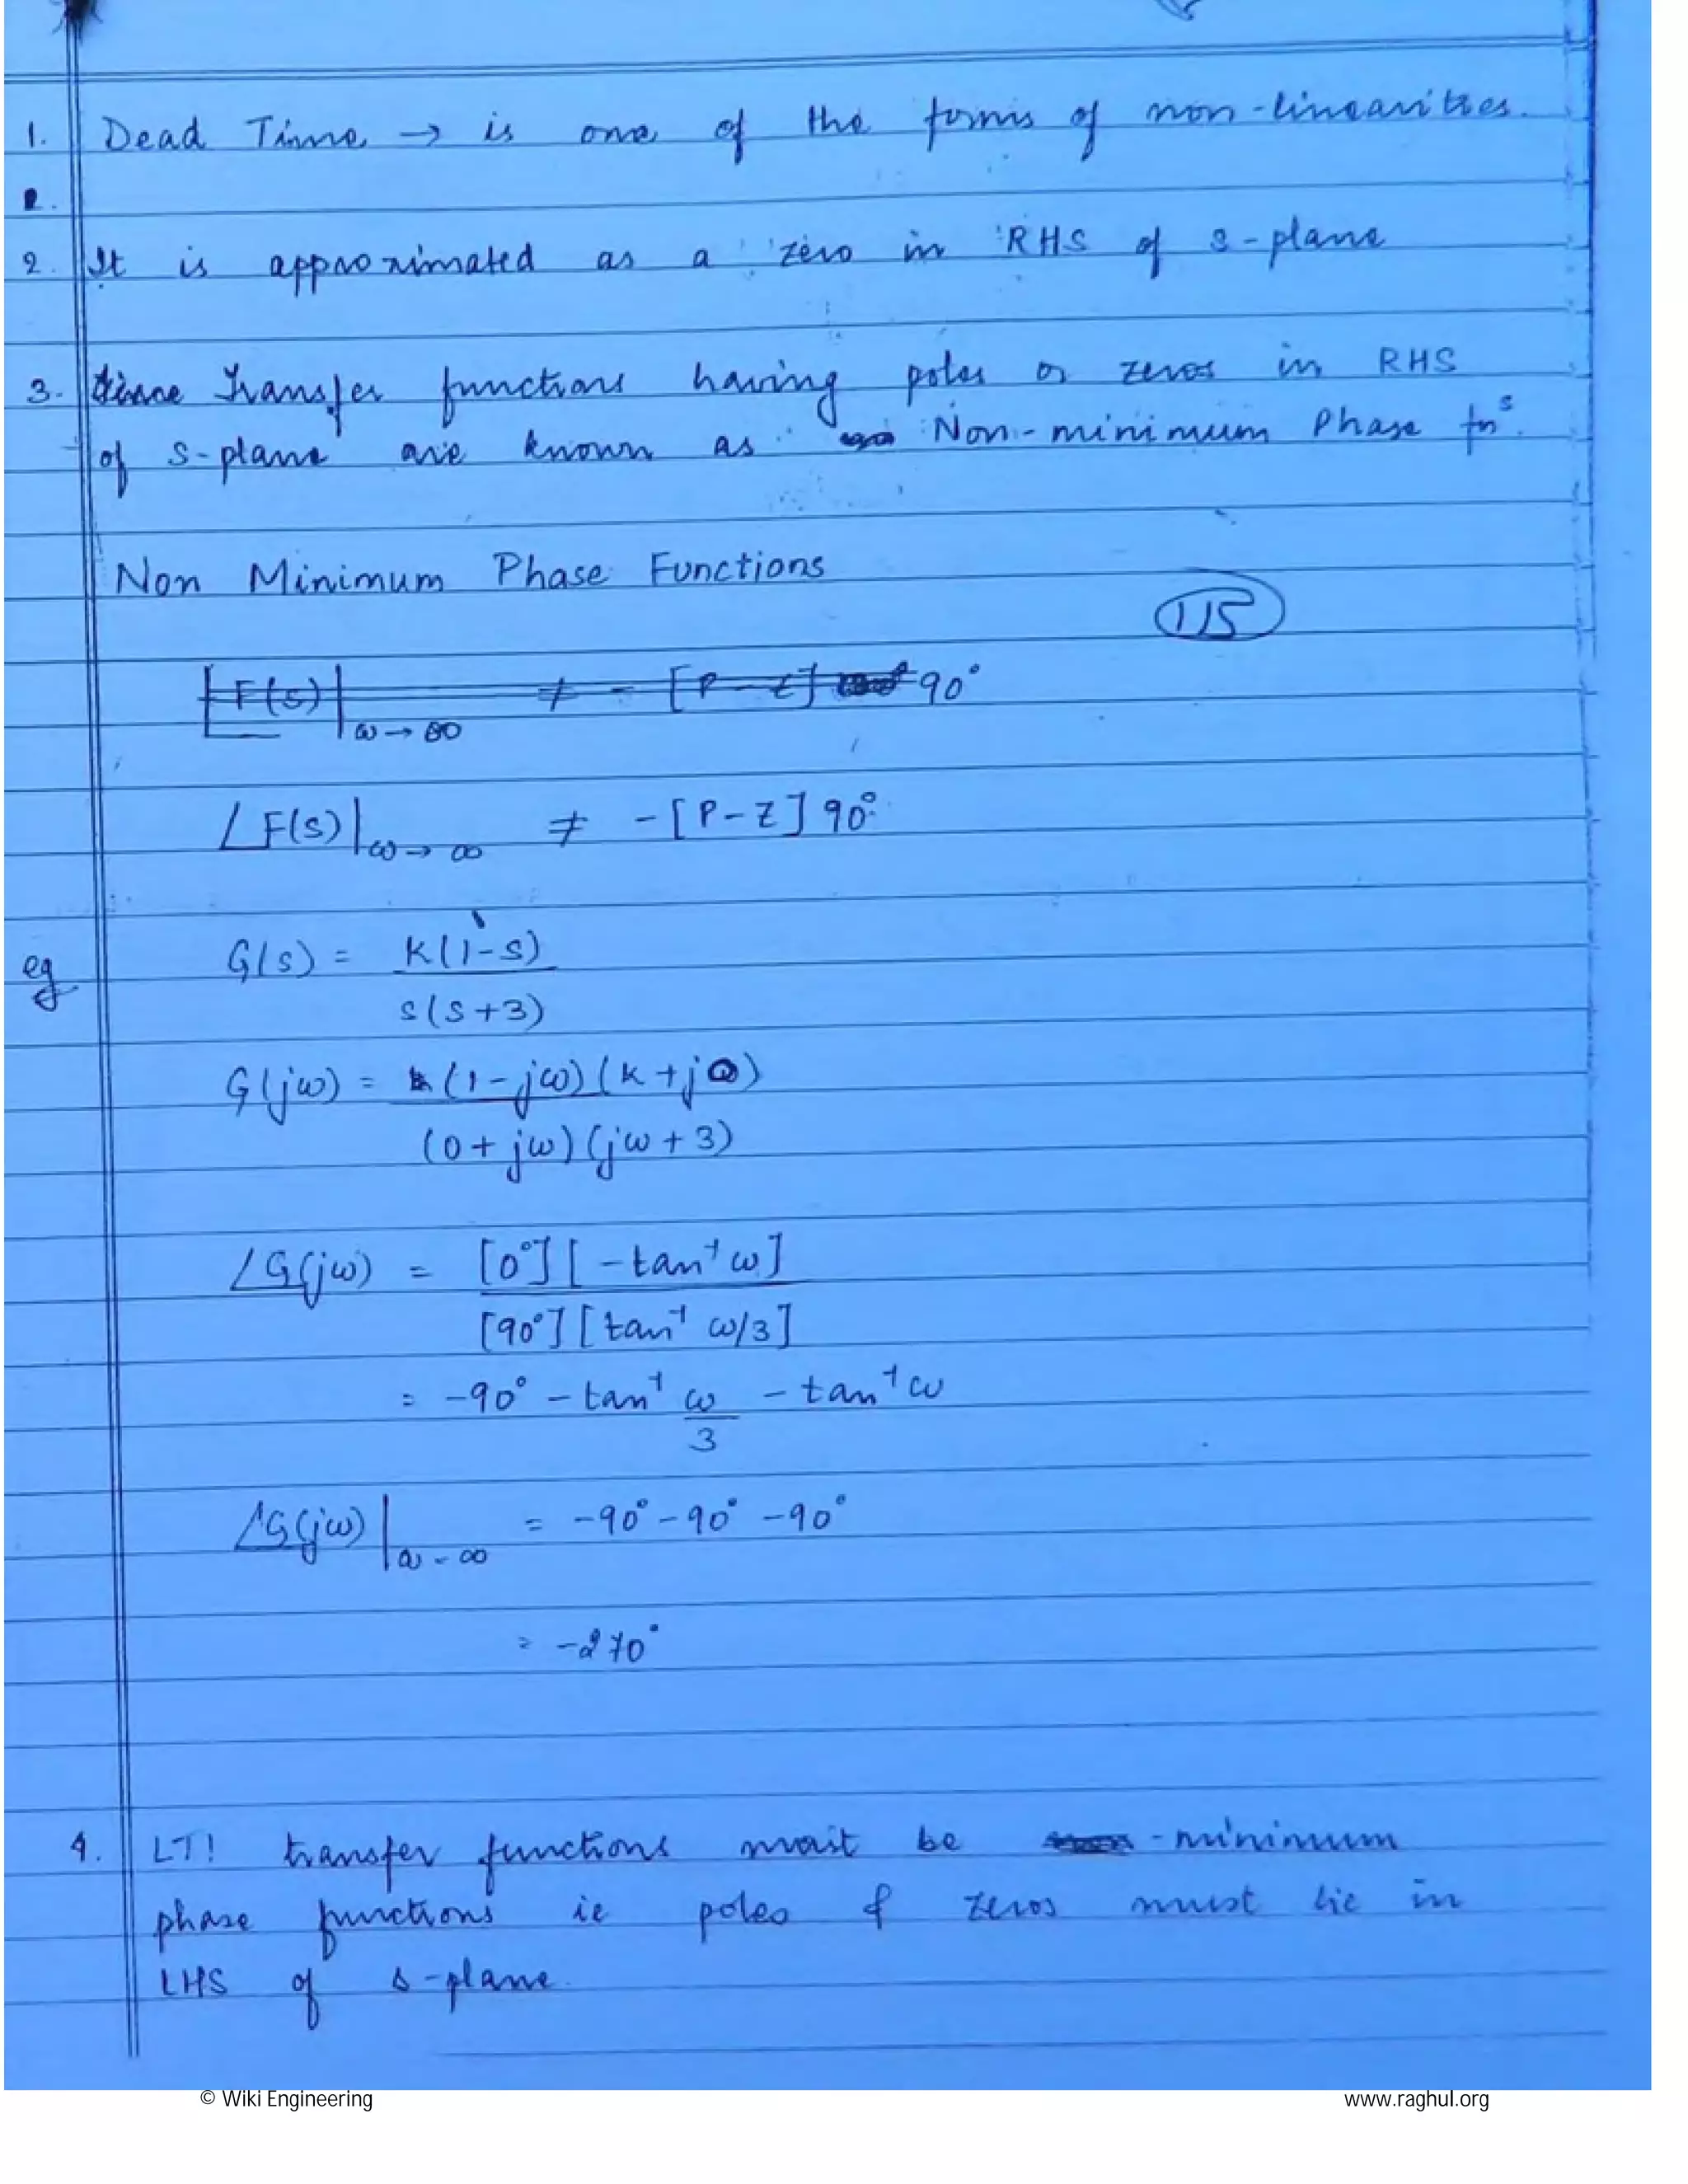 1. Dead Time → is one of the forms of non-linearities.
2. It is approximated as a zero in RHS of s-plane
3. transfer functions having poles or zeros in RHS
of s-plane are known as Non-minimum Phase fnˢ.
Non Minimum Phase Functions
115
∠F(s)|ω→∞ ≠ -[P-Z] 90°
∠F(s)|ω→∞ ≠ -[P-Z] 90°
eg G(s) = K(1-s)
s(s+3)
G(jω) = (1-jω)(K+j0)
(0+jω)(jω+3)
∠G(jω) = [0°][-tan⁻¹ω]
[90°][tan⁻¹ ω/3]
= -90° - tan⁻¹ ω - tan⁻¹ω
3
∠G(jω)|ω-∞ = -90° -90° -90°
= -270°
4. LTI transfer functions must be -minimum
phase functions ie poles & zeros must lie in
LHS of s-plane.
© Wiki Engineering www.raghul.org